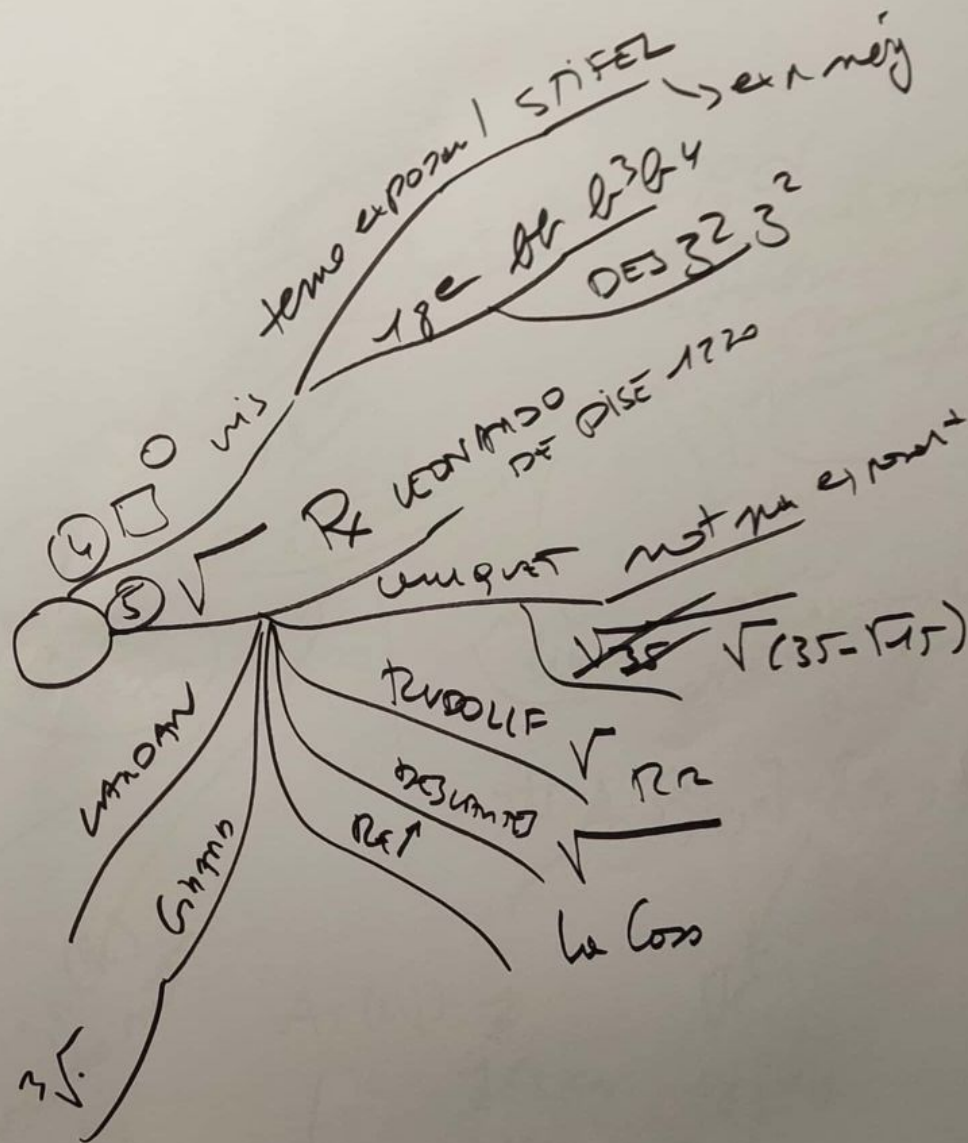 terme exposant STIFEL → exp nég
18e bb b³ b⁴
DES 3² 3²
④ □ O vis
⑤ √ Rx LEONARDO
DE PISE 1220
not par exposant
√35 √(35-√15)
RUDOLFF √
RR
DESCARTES √
REC
La Coss
CARDAN
GIRARD
3√.